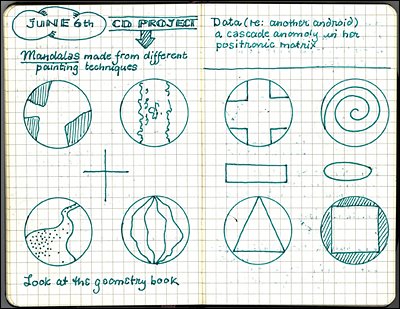 JUNE 6th
CD PROJECT
Mandalas made from different
painting techniques
Look at the geometry book
Data (re: another android)
a cascade anomoly in her
positronic matrix